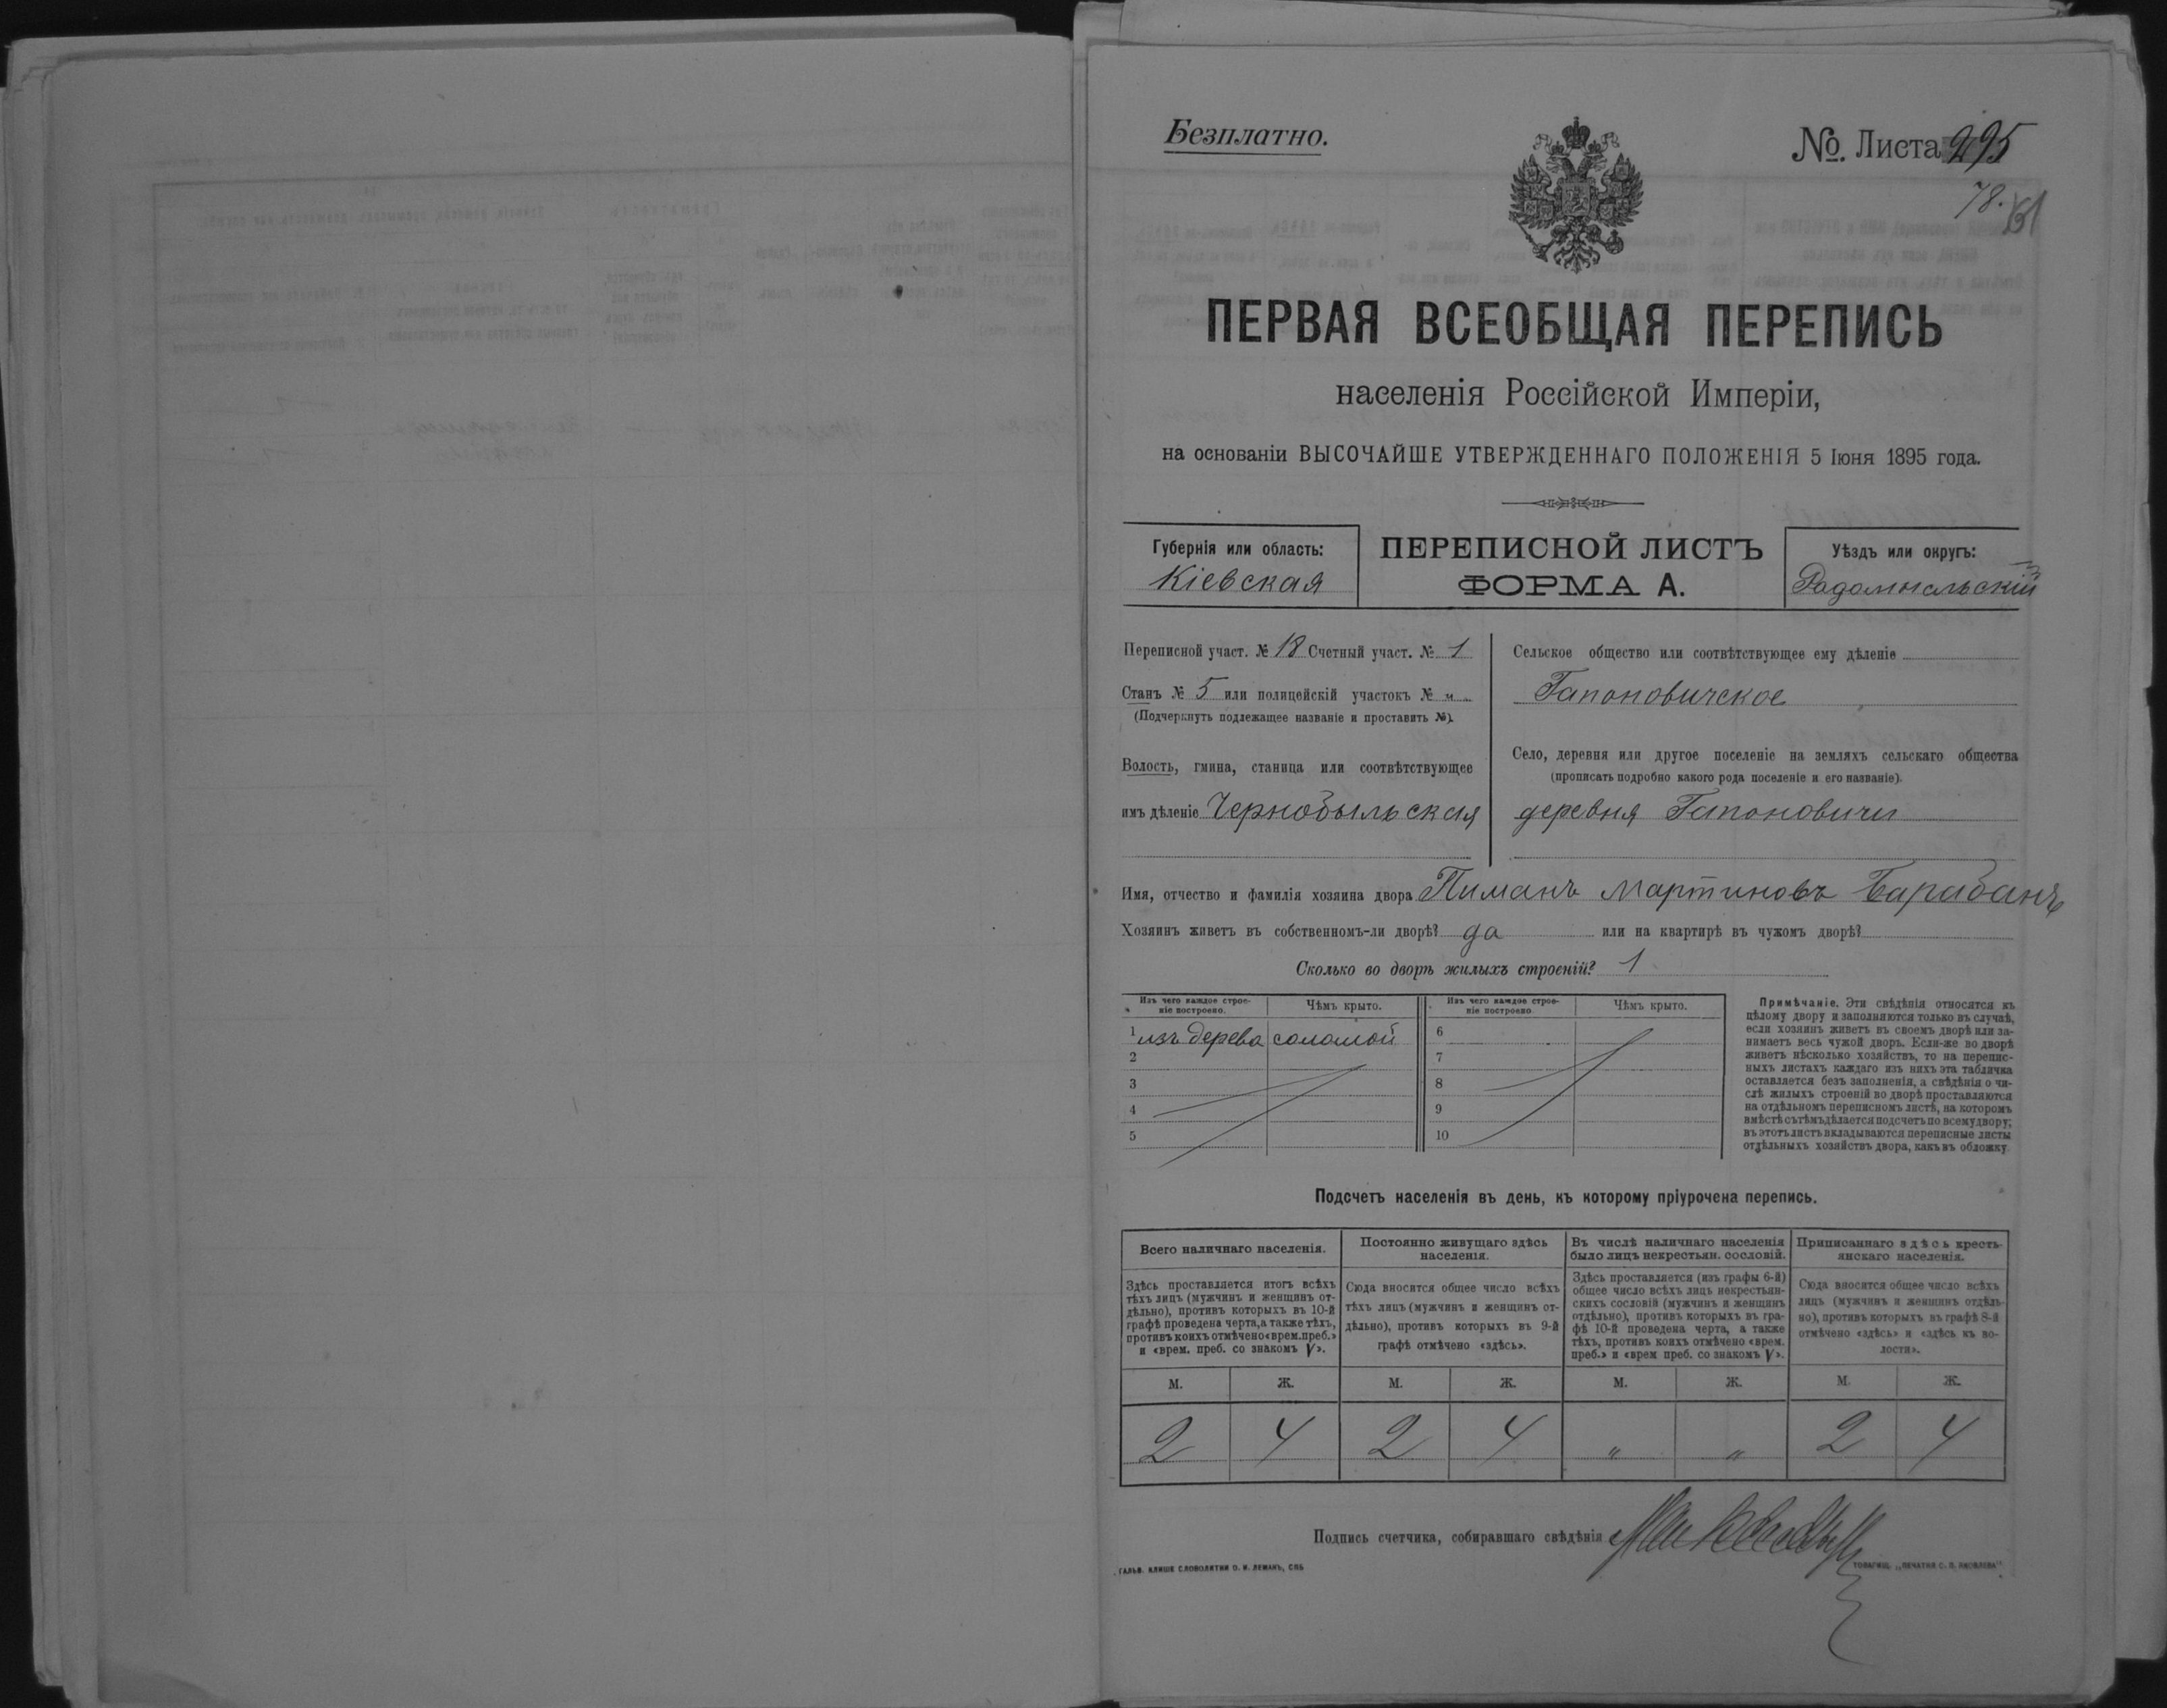 Безплатно.
№. Листа 295
78.
ПЕРВАЯ ВСЕОБЩАЯ ПЕРЕПИСЬ
населенія Россійской Имперіи,
на основаніи ВЫСОЧАЙШЕ УТВЕРЖДЕННАГО ПОЛОЖЕНІЯ 5 Іюня 1895 года.
Губернія или область:
Кіевская
ПЕРЕПИСНОЙ ЛИСТЪ
ФОРМА А.
Уѣздъ или округъ:
Радомысльскій
Переписной участ. № 18 Счетный участ. № 1
Станъ № 5 или полицейскій участокъ № „
(Подчеркнуть подлежащее названіе и проставить №).
Волость, гмина, станица или соотвѣтствующее
имъ дѣленіе Чернобыльская
Сельское общество или соотвѣтствующее ему дѣленіе
Гапоновичское
Село, деревня или другое поселеніе на земляхъ сельскаго общества
(прописать подробно какого рода поселеніе и его названіе).
деревня Гапоновичи
Имя, отчество и фамилія хозяина двора Пиманъ Мартиновъ Барабанъ
Хозяинъ живетъ въ собственномъ-ли дворѣ? да или на квартирѣ въ чужомъ дворѣ?
Сколько во дворѣ жилыхъ строеній? 1
Изъ чего каждое строе-
ніе построено.
Чѣмъ крыто.
Изъ чего каждое строе-
ніе построено
Чѣмъ крыто.
1 изъ дерева соломой 6
2 7
3 8
4 9
5 10
Примѣчаніе. Эти свѣдѣнія относятся къ
цѣлому двору и заполняются только въ случаѣ,
если хозяинъ живетъ въ своемъ дворѣ или за-
нимаетъ весь чужой дворъ. Если-же во дворѣ
живетъ нѣсколько хозяйствъ, то на перепис-
ныхъ листахъ каждаго изъ нихъ эта табличка
оставляется безъ заполненія, а свѣдѣнія о чи-
слѣ жилыхъ строеній во дворѣ проставляются
на отдѣльномъ переписномъ листѣ, на которомъ
вмѣстѣ съ тѣмъ дѣлается подсчетъ по всему двору;
въ этотъ листъ вкладываются переписные листы
отдѣльныхъ хозяйствъ двора, какъ въ обложку
Подсчетъ населенія въ день, къ которому пріурочена перепись.
Всего наличнаго населенія.
Здѣсь проставляется итогъ всѣхъ
тѣхъ лицъ (мужчинъ и женщинъ от-
дѣльно), противъ которыхъ въ 10-й
графѣ проведена черта, а также тѣхъ,
противъ коихъ отмѣчено «врем. преб.»
и «врем. преб. со знакомъ V».
Постоянно живущаго здѣсь
населенія.
Сюда вносится общее число всѣхъ
тѣхъ лицъ (мужчинъ и женщинъ от-
дѣльно), противъ которыхъ въ 9-й
графѣ отмѣчено «здѣсь».
Въ числѣ наличнаго населенія
было лицъ некрестьян. сословій.
Здѣсь проставляется (изъ графы 6-й)
общее число всѣхъ лицъ некрестьян-
скихъ сословій (мужчинъ и женщинъ
отдѣльно), противъ которыхъ въ гра-
фѣ 10-й проведена черта, а также
тѣхъ, противъ коихъ отмѣчено «врем.
преб.» и «врем преб. со знакомъ V».
Приписаннаго здѣсь кресть-
янскаго населенія.
Сюда вносится общее число всѣхъ
лицъ (мужчинъ и женщинъ отдѣль-
но), противъ которыхъ въ графѣ 8-й
отмѣчено «здѣсь» и «здѣсь къ во-
лости».
М. Ж. М. Ж. М. Ж. М. Ж.
2 4 2 4 „ „ 2 4
Подпись счетчика, собиравшаго свѣдѣнія
ГАЛЬВ. КЛИШЕ СЛОВОЛИТНИ О. И. ЛЕМАНЪ, СПБ
ТОВАРИЩ. „ПЕЧАТНЯ С. П. ЯКОВЛЕВА“